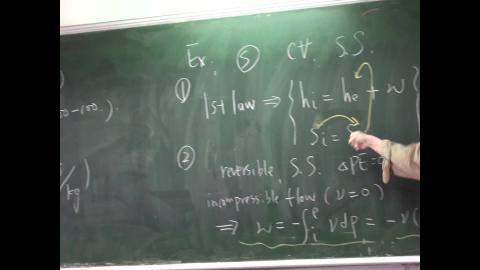 Ex. ⑤ C.V. S.S.
① 1st law ⇒ { hi = he + w
si = s
② reversible, S.S. ΔPE=0
incompressible flow (v=0)
⇒ w = -∫ᵢᵉ vdp = -v(
00-100.).
/kg)